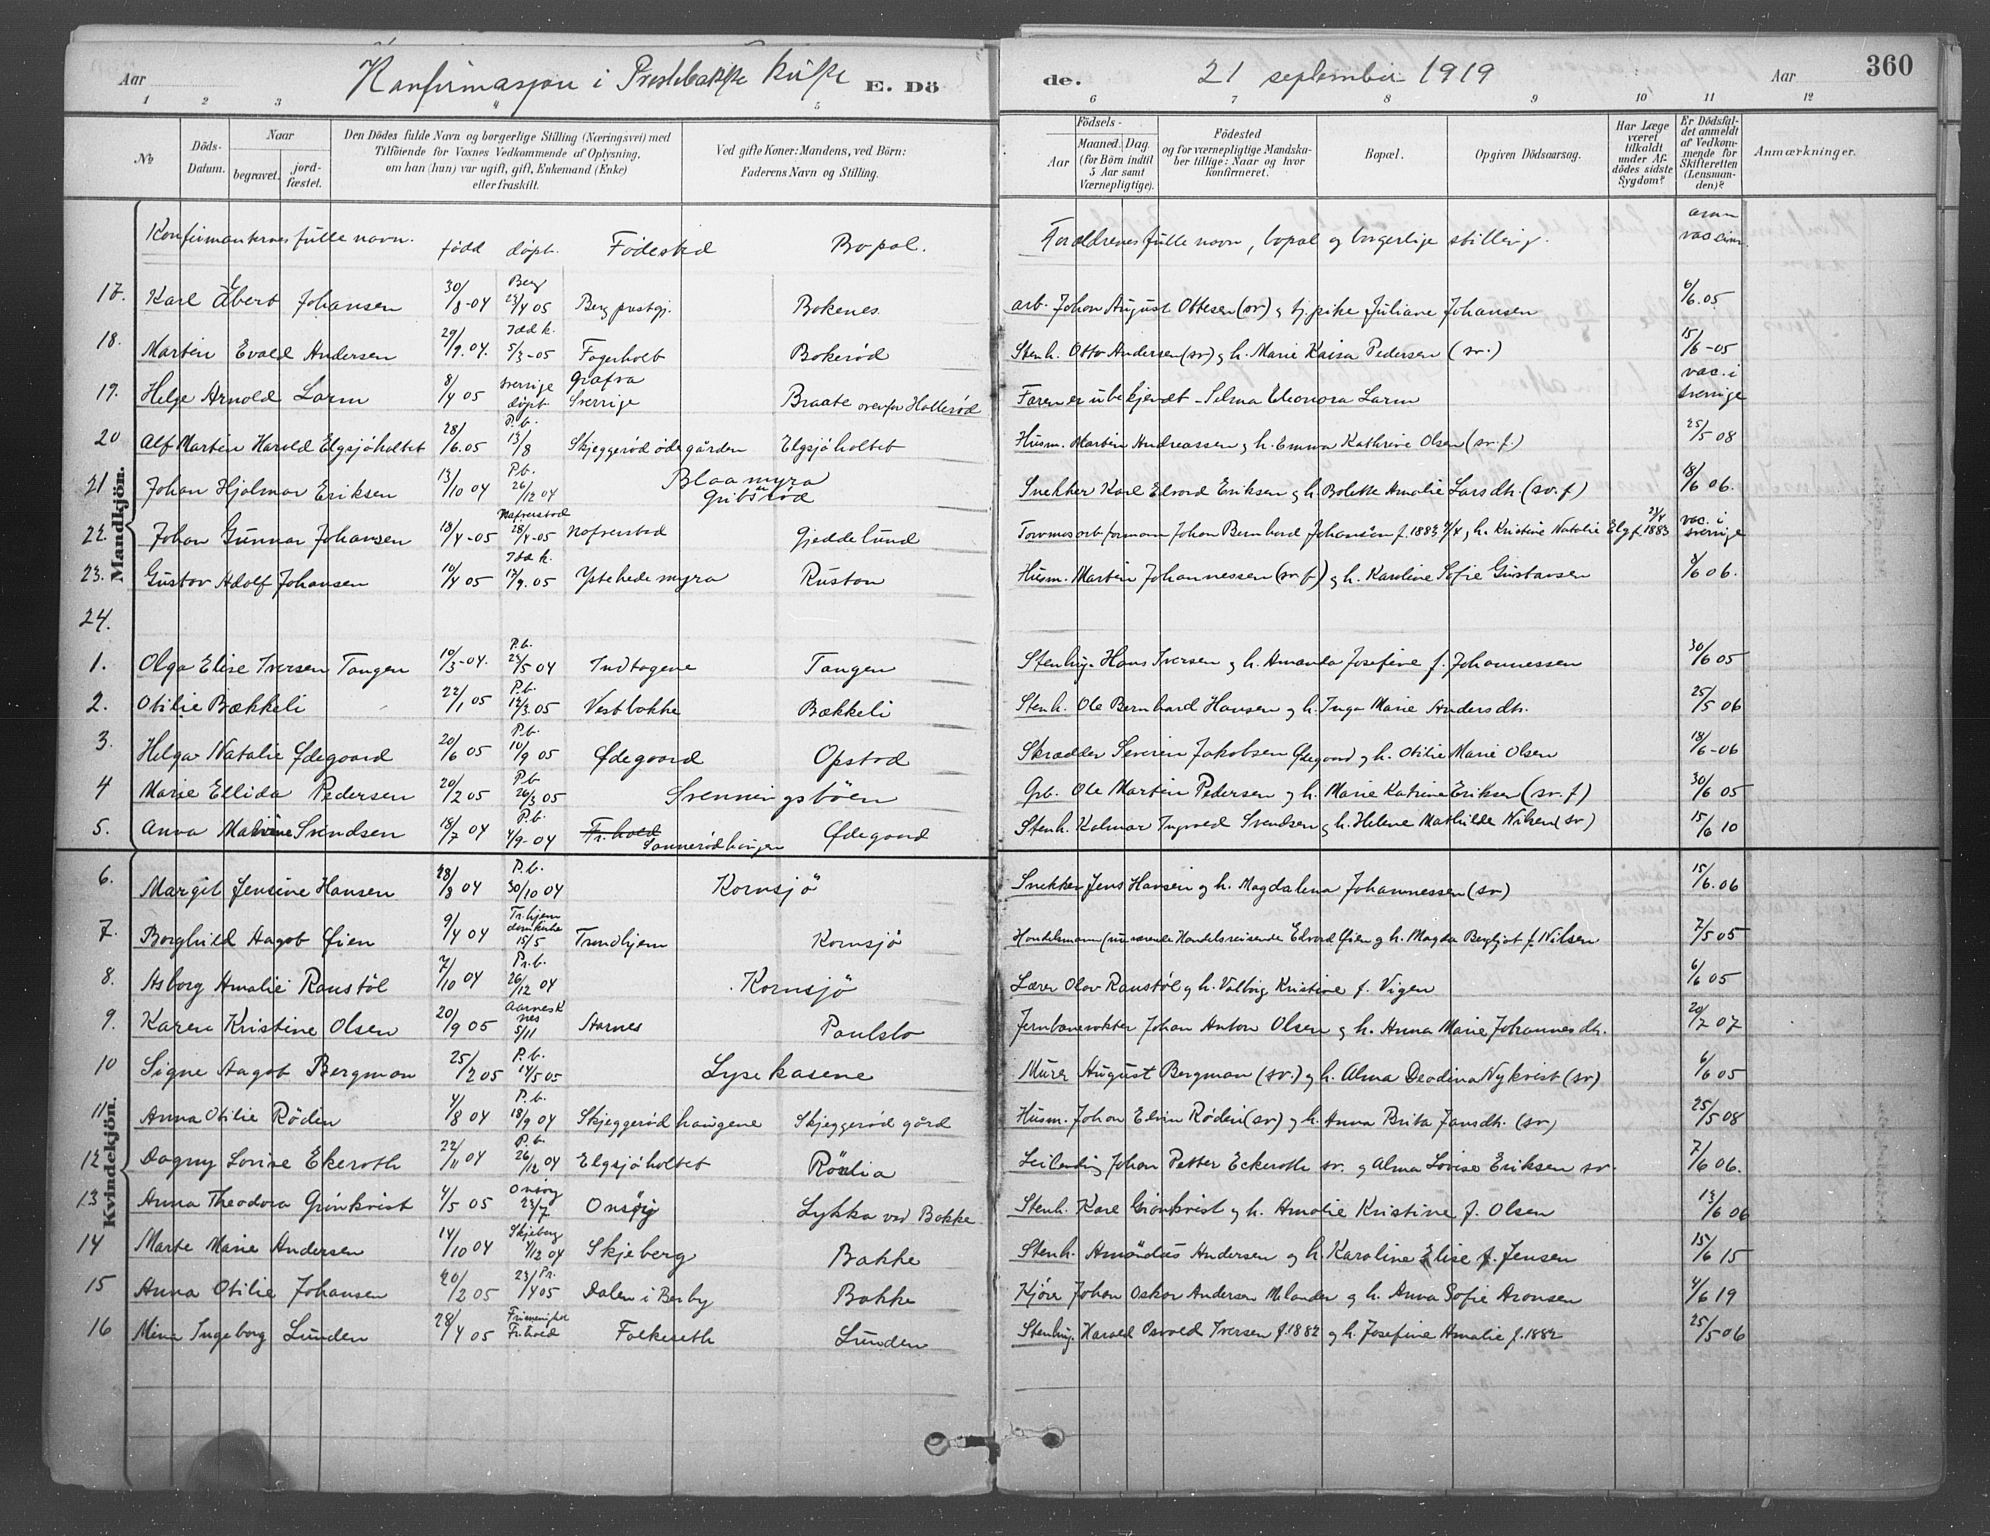 Aar Konfirmasjon i Prestebakke kirke E. Dö de. 21 september 1919 Aar 360
1 2 3 4 5 6 7 8 9 10 11 12
No
Döds-Datum.
Naar
begravet. jord-fæstet.
Den Dödes fulde Navn og borgerlige Stilling (Næringsvei) med
Tilföiende for Voxnes Vedkommende af Oplysning,
om han (hun) var ugift, gift, Enkemand (Enke)
eller fraskilt.
Ved gifte Koner: Mandens, ved Börn:
Faderens Navn og Stilling.
Födsels-
Aar
Maaned. Dag.
(for Börn indtil
5 Aar samt
Værnepligtige).
Födested
og for værnepligtige Mandska-
ber tillige: Naar og hvor
konfirmeret.
Bopæl.
Opgiven Dödsaarsag.
Har Læge
været
tilkaldt
under Af-
dödes sidste
Sygdom?
Er Dödsfal-
det anmeldt
af Vedkom-
mende for
Skifteretten
(Lensman-
den)?
Anmærkninger.
Mandkjön.
Konfirmanternes fulle navn. född döpt. Födested Bopæl. Foreldrenes fulle navn, bopæl og borgerlige stilling. vaccin.
17. Karl Johansen 30/8-04 Berg 23/4 05 Berg prestgj. Bokenes arb. Johan August Ottesen (sv) og tj.pike Juliane Johansen 6/6.05
18. Martin Evald Andersen 29/9.04. Idd k. 5/3-05 Fagerholt Bokerød Stenh. Otto Andersen (sv) og h. Marie Kaisa Pedersen (sv.) 15/6-05
19. Helge Arnold Larm 8/4 05 sverrige döpt Grafva Sverrige Braate ovenfor Hallerød Faren er ubekjendt - Selma Eleonora Larm vac. i sverrige
20 Alf Martin Harald Elgsjöholtet 28/6.05 P.b. 13/8 Skjeggerød ödegården Elgsjöholtet Husm. Martin Andreassen og h. Emma Kathrine Olsen (sv. f.) 25/5 08
21 Johan Hjalmar Eriksen 13/10 04 P.b. 26/12 04 Blaamyra Gribsröd Snekker Karl Edvard Eriksen og h. Bolette Amalie Larsdh. (sv. f) 18/6 06.
22. Johan Gunnar Johansen 18/4-05 Nafverstad 28/4-05 Nafverstad Gjeddelund Torvmosarb.formann Johan Bernhard Johansen f. 1883 9/4 og h. Kristine Natalie Elg f. 23/4 1883 vac. i sverige
23. Gustav Adolf Johansen 10/4 05 Idd k. 17/9.05 Ystehedemyra Rustan Husm. Martin Johannessen (sv. f) og h. Karoline Sofie Gustavsen 8/6 06.
24.
1. Olga Elise Iversen Tangen 10/3-04. P.b. 23/5 04 Indtagene Tangen Stenhug. Hans Iversen og h. Amanda Josefine f. Johannessen 30/6 05
2. Otilie Bækkeli 22/1 05 P.b. 12/3.05 Vestbakke Bækkeli Stenh. Ole Bernhard Hansen og h. Inga Marie Andersdh. 25/5 06
3. Helga Natalie Ødegaard 20/6 05 P.b. 10/9 05 Ødegaard Opstad Skrædder Severin Jakobsen Ødegaard og h. Otilie Marie Olsen 18/6-06
4 Marie Ellida Pedersen 20/2 05 P.b. 26/3 05 Svenningsböen Grb. Ole Martin Pedersen og h. Marie Katrine Eriksen (sv. f) 30/6 05
5. Anna Malvine Svendsen 18/7 04 P.b. 4/9-04 Fr.hald Sannerødhaugen Ødegaard Stenh. Kalmar Ingvald Svendsen og h. Helene Mathilde Nilsen (sv) 15/6 10
Kvindekjön.
6. Margit Jensine Hansen 28/8 04 P.b. 30/10 04 Kornsjö Snekker Jens Hansen og h. Magdalena Johannessen (sv) 15/6.06
7. Borghild Aagot Øien 9/4 04 Tr.hjem domkirke 15/5 Trondhjem Kornsjö Handelsmann (nuværende Handelsreisende Edvard Øien og h. Magda Bergljot f. Nilsen 7/5 05
8. Asborg Amalie Raustöl 7/10 04 Pr.b. 26/12 04 Kornsjö Lærer Olav Raustöl og h. Valborg Kristine f. Vigen 6/6 05
9. Karen Kristine Olsen 20/9 05 Aarnes k 5/11 Aarnes Paulsbo Jernbanevokter Johan Anton Olsen og h. Anna Marie Johannesdh. 20/7 07
10 Signe Aagot Bergman 25/2 05 P.b. 14/5 05 Lysekasene Murer August Bergman (sv.) og h. Alma Deodina Nykvist (sv) 6/6 05
11. Anna Otilie Röden 4/8 04 P.b. 18/9 04 Skjeggerødhaugene Skjeggerød gård Husm. Johan Edvin Röden (sv) og h. Anna Brita Jansdh. (sv) 25/5 08
12 Dagny Lovise Ekeroth 22/11 04 P.b. 26/12 04 Elgsjöholtet Röslia Leilending Johan Petter Eckeroth sv. og Alma Lovise Eriksen sv. 7/6 06.
13 Anna Theodora Grönkvist 4/5 05 Onsöy 23/7 Onsöy Lykka ved Bakke Stenh. Karl Grönkvist og h. Amalie Kristine f. Olsen 13/6 06
14 Marte Marie Andersen 14/10 04 Skjeberg 4/12 04 Skjeberg Bakke Stenh. Amandus Andersen og h. Karoline Elise f. Jensen 15/6 15
15 Anna Otilie Johansen 20/2 05 23/4 05 Pr. Dalen i Berby Bakke Kjörer Johan Oskar Andersen Melander og h. Anna Sofie Aronsen 4/6 19
16 Mina Ingeborg Lunden 28/4 05 Frimenighet Fr.hald Folkereth Lunden Stenhug. Harald Osvald Iversen f. 1882 og h. Josefine Amalie f. 1882 25/5 06